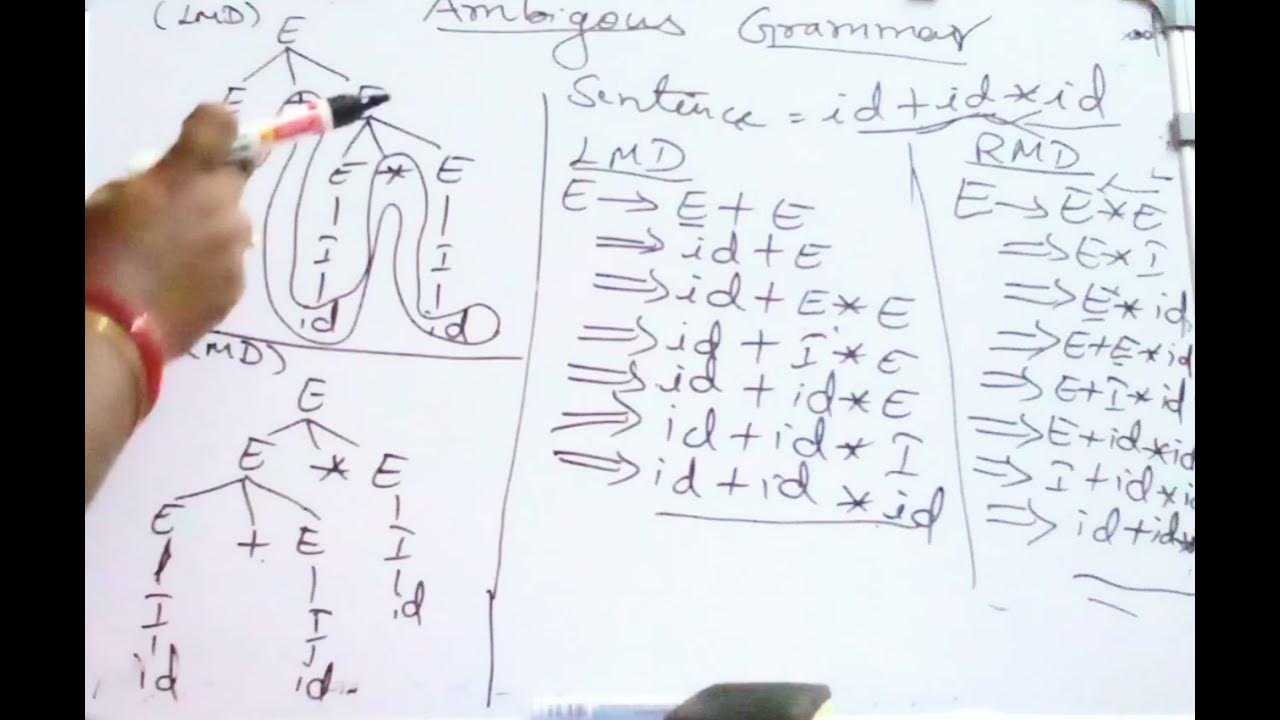 Ambigous Grammar
(LMD)
E
E + E
E * E
I I
id id
MD)
E
E * E
E + E I
I I id
id id
Sentence = id + id * id
LMD
E → E + E
⇒ id + E
⇒ id + E * E
⇒ id + I * E
⇒ id + id * E
⇒ id + id * I
⇒ id + id * id
RMD
E → E * E
⇒ E * I
⇒ E * id
⇒ E + E * id
⇒ E + I * id
⇒ E + id * id
⇒ I + id * id
⇒ id + id *